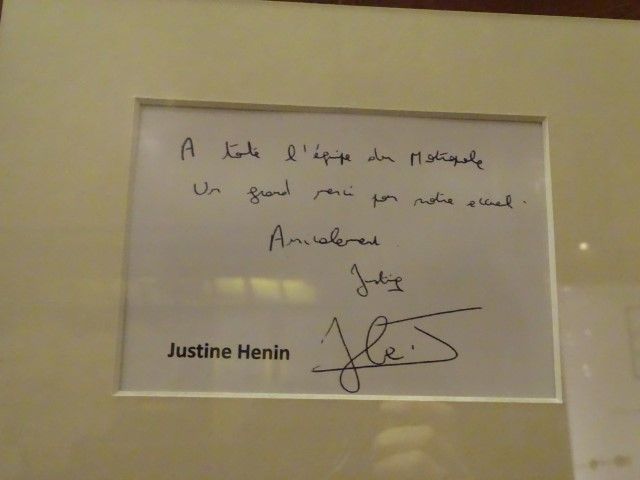 A toute l'équipe du Métropole
Un grand merci pour notre accueil.
Amicalement.
Justine
Justine Henin